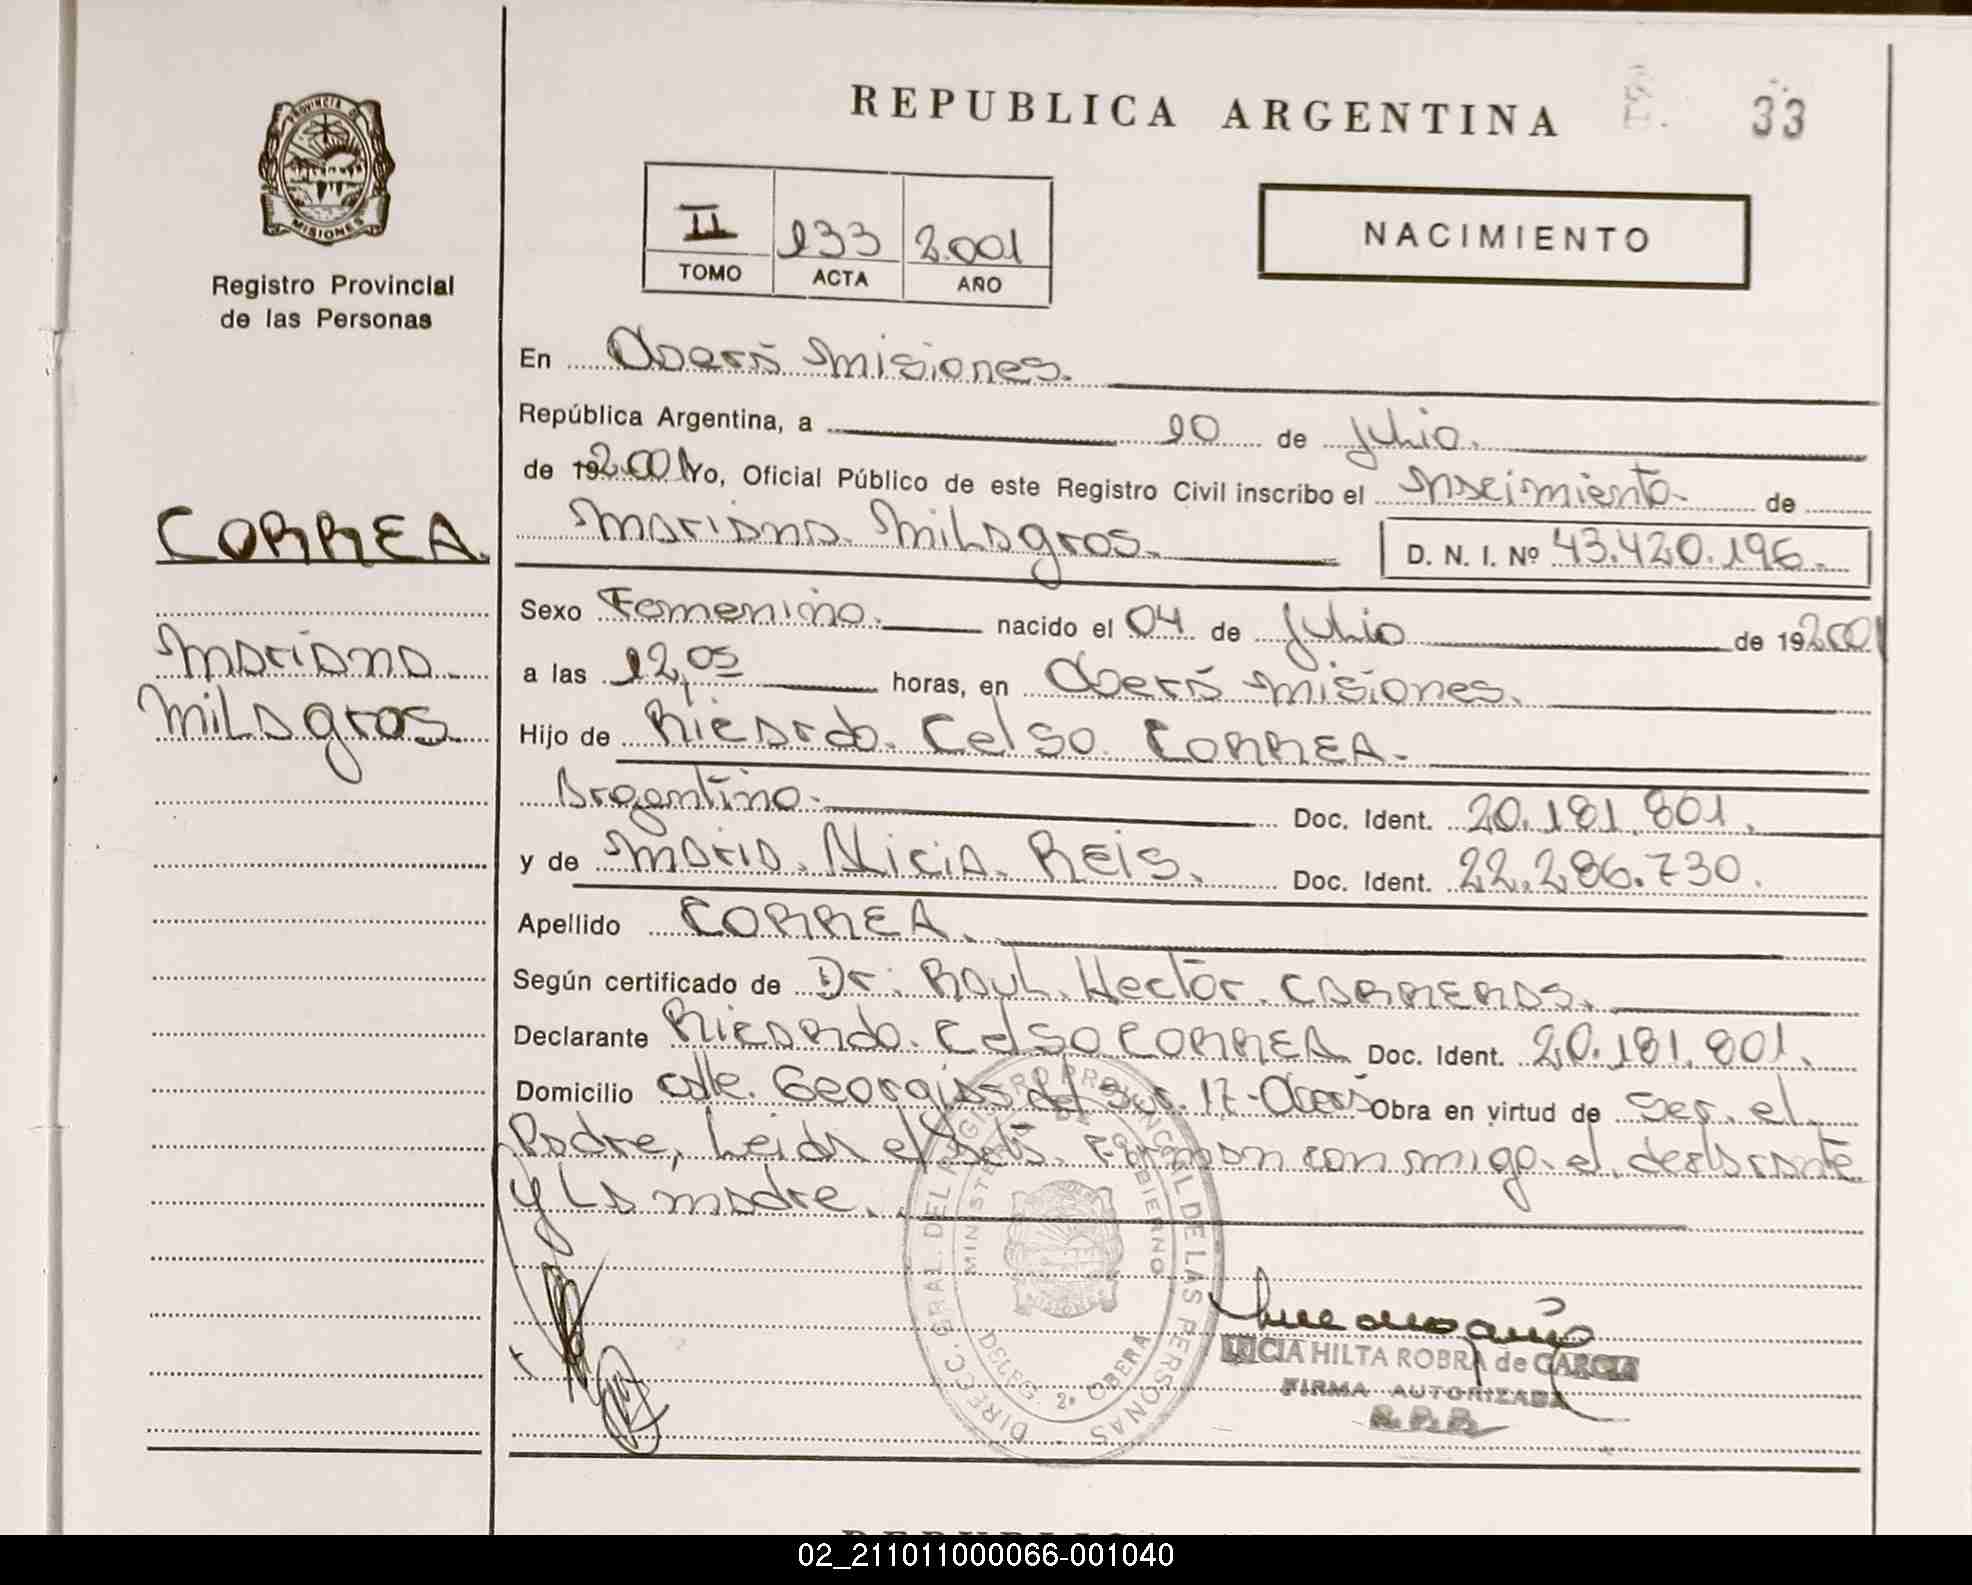 REPUBLICA ARGENTINA
33
PROVINCIA DE
MISIONES
Registro Provincial
de las Personas
II 133 2.001
TOMO ACTA AÑO
NACIMIENTO
En Oberá Misiones.
República Argentina, a 10 de Julio.
de 192.001 Yo, Oficial Público de este Registro Civil inscribo el nacimiento de
Mariana Milagros. D. N. I. Nº 43.420.196.
CORREA.
Mariana
Milagros
Sexo Femenino. nacido el 04 de Julio de 192.001
a las 12,05 horas, en Oberá Misiones.
Hijo de Ricardo Celso CORREA.
Argentino. Doc. Ident. 20.181.801.
y de Maria Alicia REIS. Doc. Ident. 22.286.730.
Apellido CORREA.
Según certificado de Dr. Raul Hector CARRERAS.
Declarante Ricardo Celso CORREA Doc. Ident. 20.181.801.
Domicilio calle Georgias del Sur 17-Oberá Obra en virtud de ser el
Padre, Leida el Acta. Firman conmigo el declarante
y La madre.
DIRECC. GRAL. DEL REGISTRO PROVINCIAL DE LAS PERSONAS
MINISTERIO DE GOBIERNO
2º OBERA
LUCIA HILTA ROBRA de GARCIA
FIRMA AUTORIZADA
R.P.P.
02_211011000066-001040